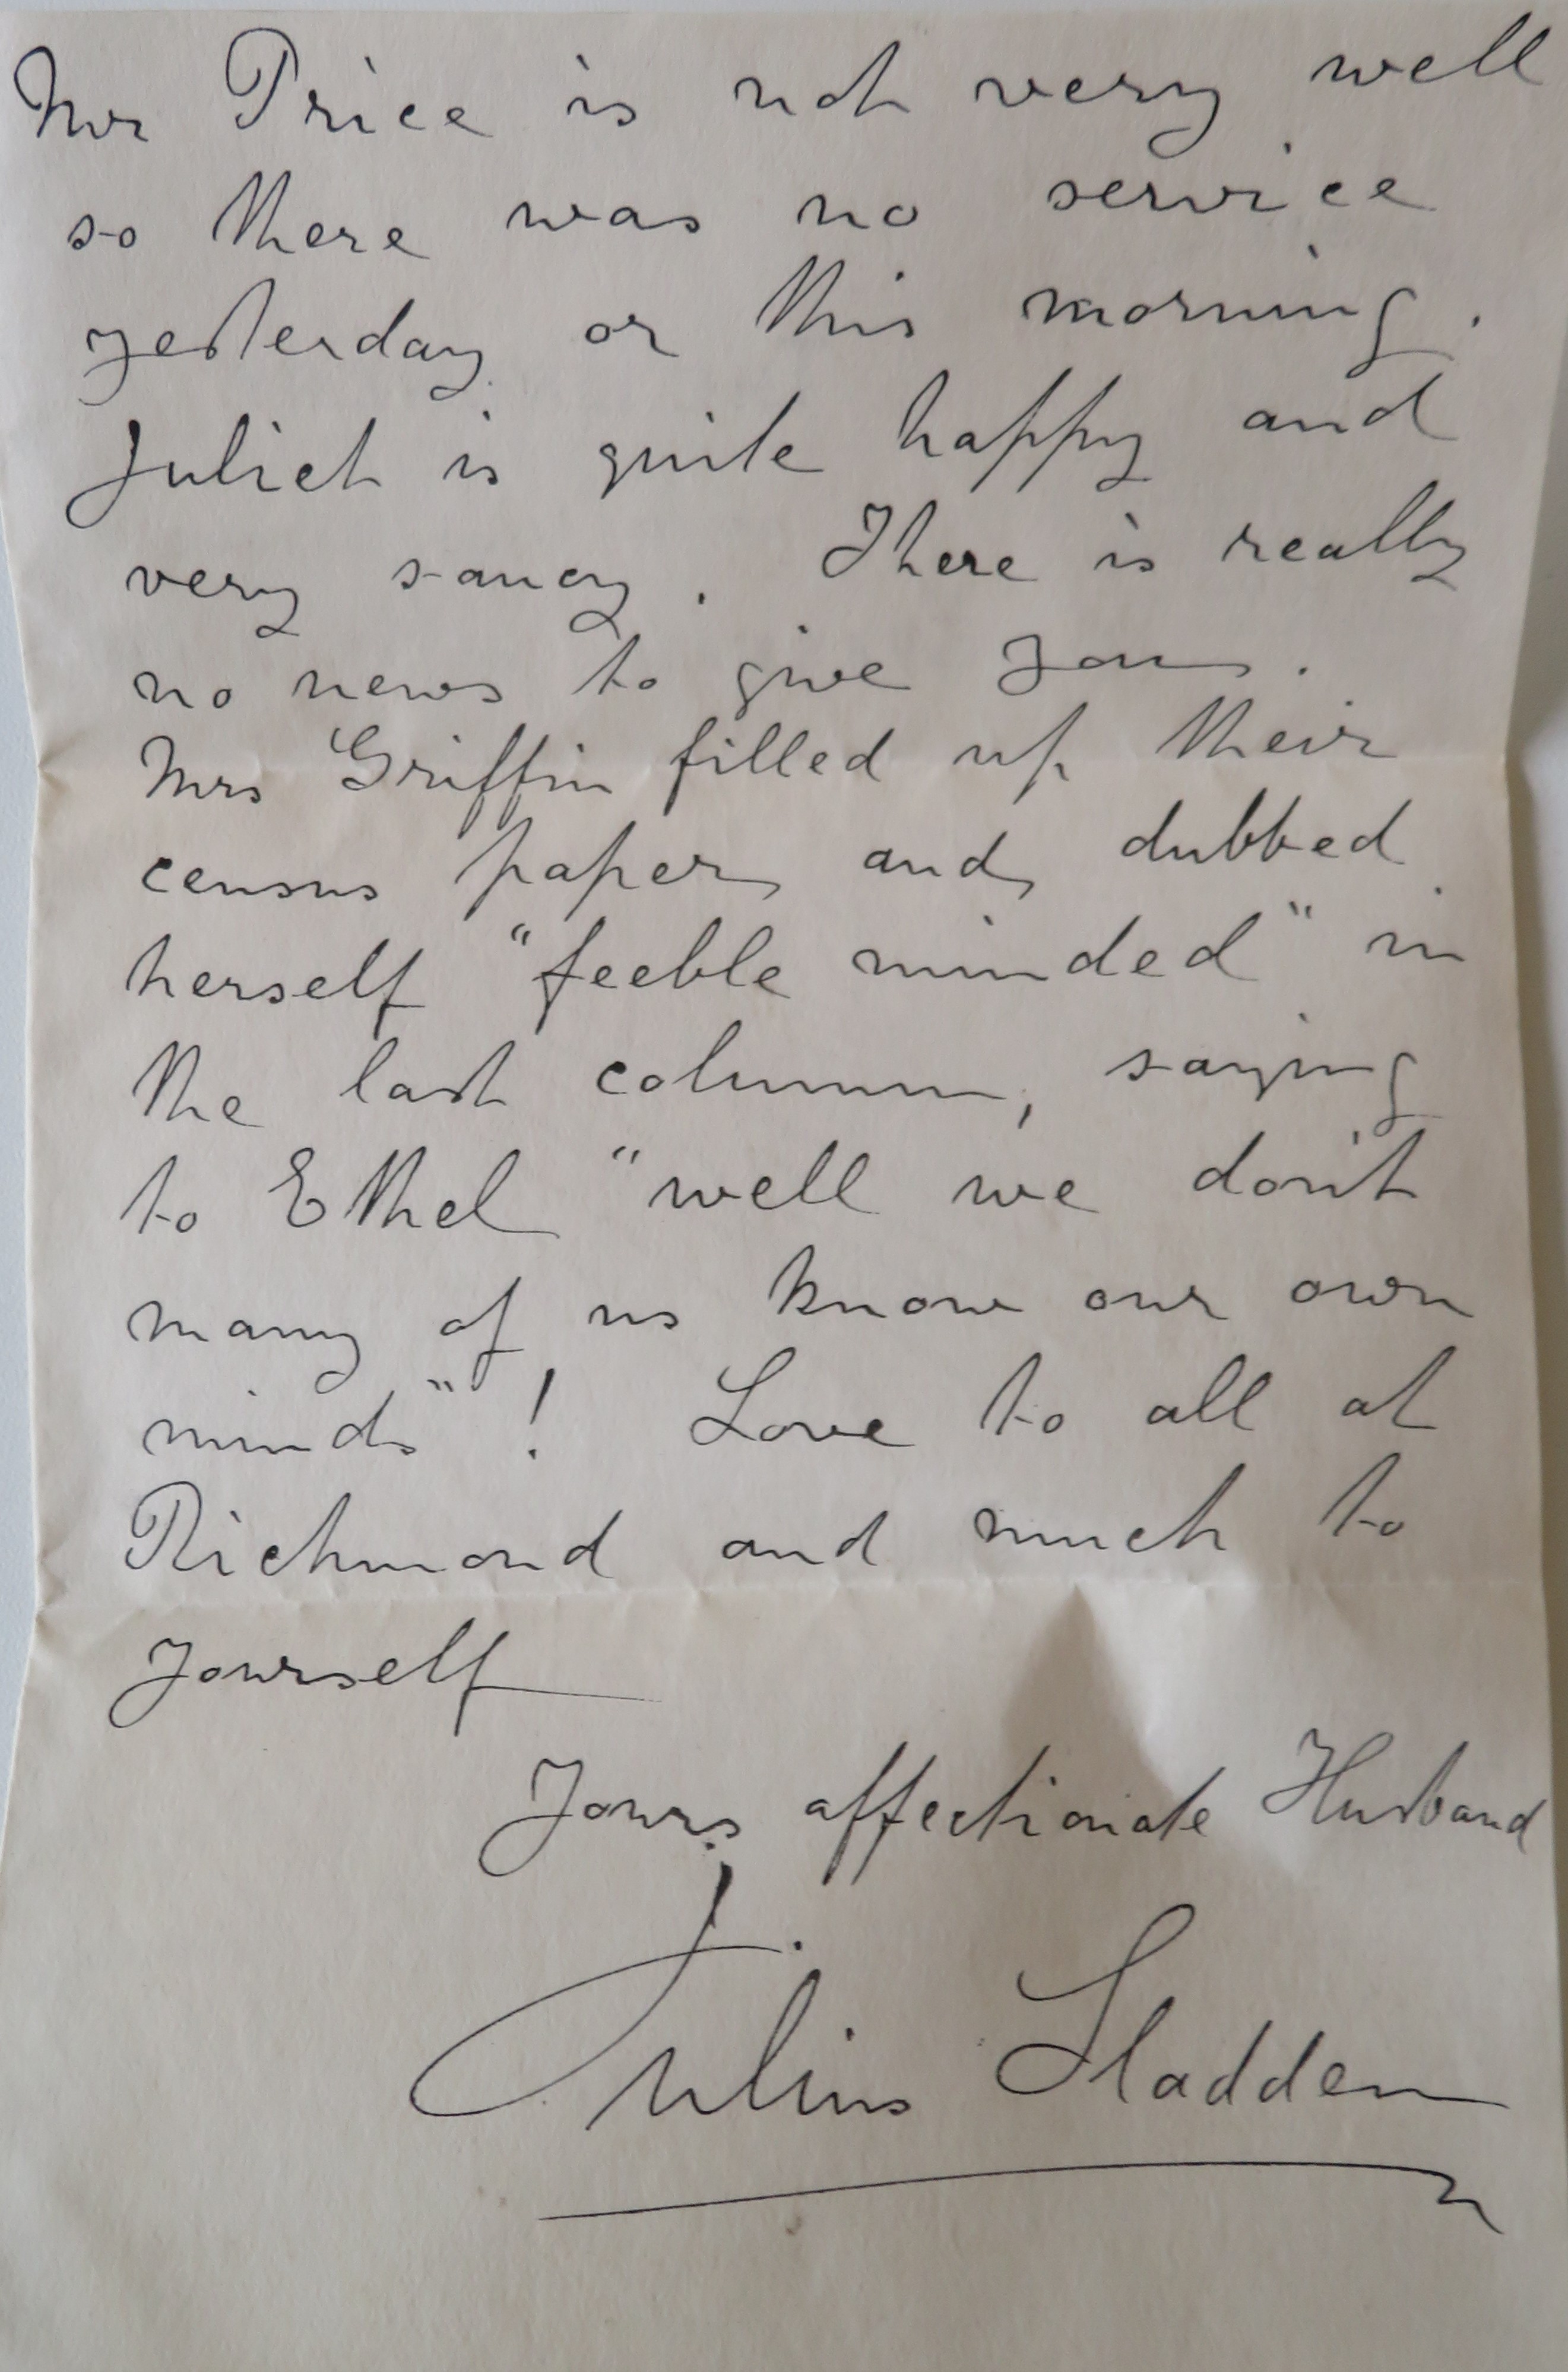 Mr Price is not very well
so there was no service
yesterday or this morning.
Juliet is quite happy and
very saucy. There is really
no news to give you.
Mrs Griffin filled up their
census paper and dubbed
herself "feeble minded" in
the last column, saying
to Ethel "well we don't
many of us know our own
minds"! Love to all at
Richmond and much to
yourself
Yours affectionate Husband
Julius Sladden